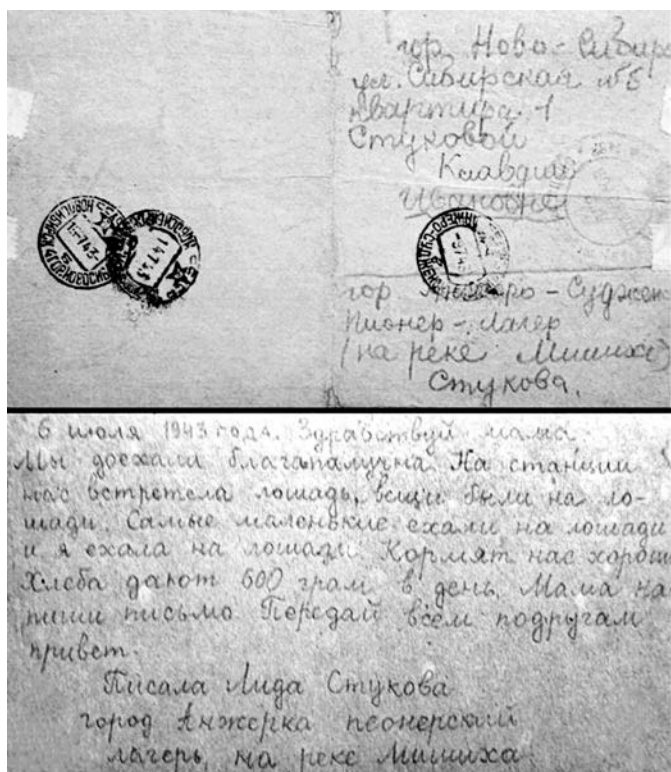 гор. Ново-Сибир
ул. Сибирская №5
квартира 1
Стуковой
Клавдии
Ивановне
гор Анжеро-Суджен
Пионер-Лагер
(на реке Мишихе)
Стукова.
6 июля 1943 года. Здравствуй мама.
Мы доехали благапалучна. На станции
нас встретела лошадь, вещи были на ло-
шади. Самые маленькие ехали на лошади
и я ехала на лошади. Кормят нас хорош
Хлеба дают 600 грам в день. Мама на
пиши письмо Передай всем подругам
привет.
Писала Лида Стукова
город Анжерка пеонерский
лагерь, на реке Мишиха